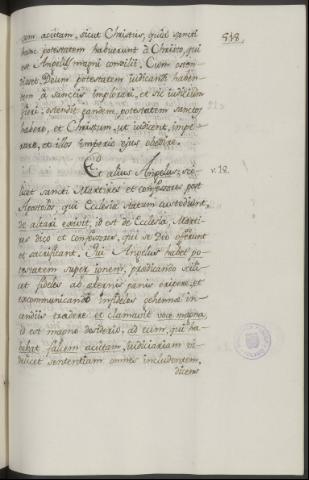 518.
cem acutam, sicut Christus, quia sancti
hanc potestatem habuerunt à Christo, qui
est Angelus magni consilii. Cum osten-
disset Deum potestatem iudicandi haben-
tem à sanctis implorari, et sic iudicium
fieri, ostendit eandem potestatem sanctos
habere, et Christum, ut iudicent, impe-
rare, et illos imperio ejus obedire.
Et alius Angelus, sci-
v. 18.
licet sancti Martires et confessores post
Apostolos, qui Ecclesiæ statum custodiunt,
de altari exivit, id est de Ecclesia, Marti-
res dico et confessores, qui se Deo offerunt
et sacrificant. Qui Angelus habet po-
testatem super ignem, prædicando scili-
cet fideles ab æternis pœnis eripere, et
excommunicando infideles gehennæ in-
cendiis tradere et clamavit voce magna,
id est magno desiderio, ad eum, qui ha-
bebat falcem acutam, iudiciariam vi-
delicet sententiam omnes includentem,
dicens